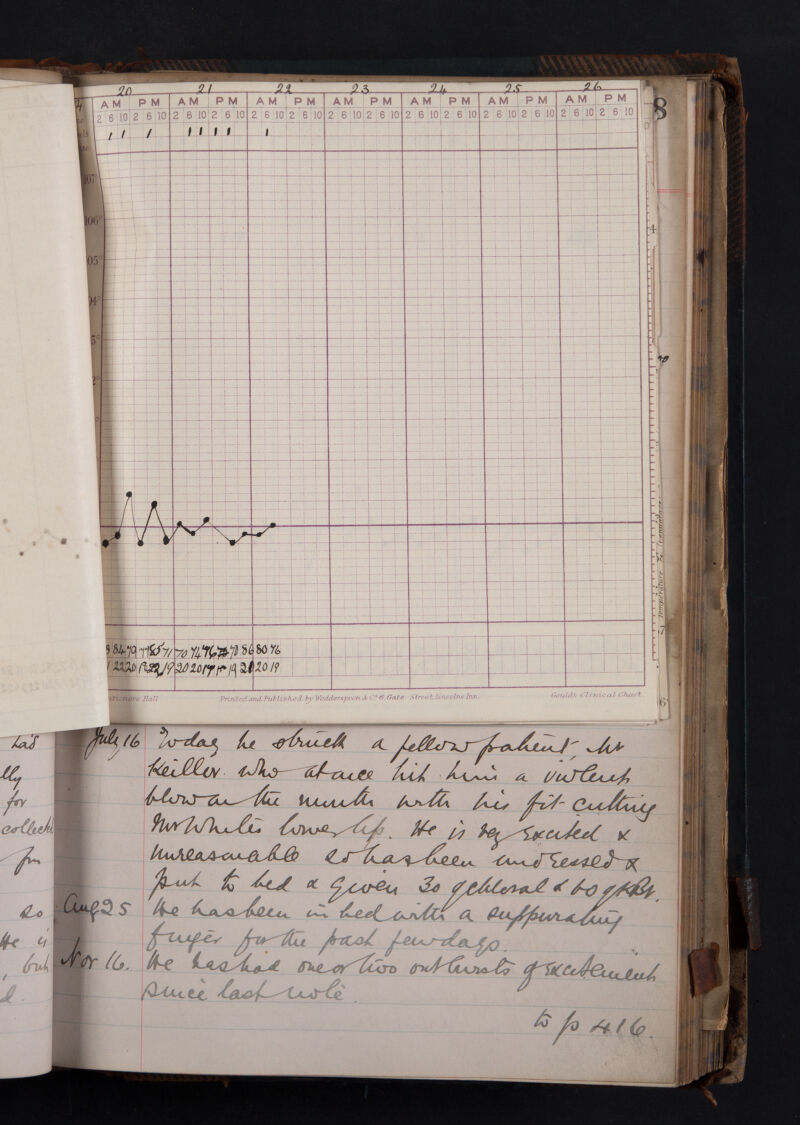 20 21 22 23 24 25 26
AM PM AM PM AM PM AM PM AM PM AM PM AM PM
2 6 10 2 6 10 2 6 10 2 6 10 2 6 10 2 6 10 2 6 10 2 6 10 2 6 10 2 6 10 2 6 10 2 6 10 2 6 10 2 6 10
8
107°
106°
05°
04°
3°
2°
84 79 71 70 74 76 78 86 80 76
22 20 19 20 20 19 20 20 19
Stationers Hall Printed and Published by Wodderspoon & Co 6, Gate Street, Lincolns Inn. Gould's Clinical Chart
July 16 Today he struck a fellow patient, Mr
Keiller who at once hit him a violent
blow on the mouth with his fist cutting
Mr White's lower lip. He is very excited &
unreasonable so has been undressed &
put to bed & given 30 g chloral & 60 gr KBr.
Aug 25 He has been in bed with a suppurating
finger for the past few days.
Nov 16. He has had one or two outbursts of excitement
since last note.
to p 416.
has
lly
for
collect
for
so
He is
, but
d.